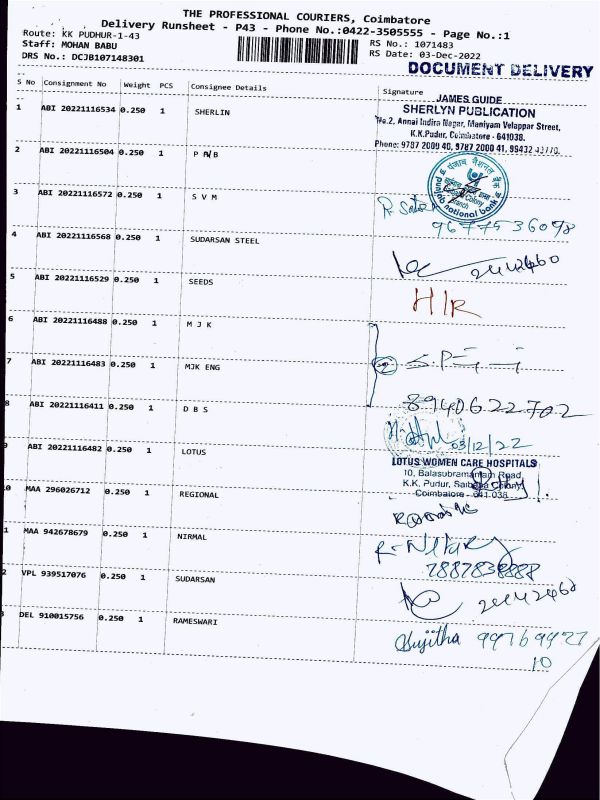 THE PROFESSIONAL COURIERS, Coimbatore
Delivery Runsheet - P43 - Phone No.:0422-3505555 - Page No.:1
Route: KK PUDHUR-1-43
Staff: MOHAN BABU
DRS No.: DCJB107148301
RS No.: 1071483
RS Date: 03-Dec-2022
DOCUMENT DELIVERY
S No Consignment No Weight PCS Consignee Details Signature
JAMES GUIDE
1 ABI 20221116534 0.250 1 SHERLIN SHERLYN PUBLICATION
No.2, Annai Indira Nagar, Maniyam Velappar Street,
K.K.Pudur, Coimbatore - 641038.
Phone: 9787 2000 40, 9787 2000 41, 99432
2 ABI 20221116504 0.250 1 P N B
पंजाब नैशनल बैंक
punjab national bank
3 ABI 20221116572 0.250 1 S V M
9677536098
4 ABI 20221116568 0.250 1 SUDARSAN STEEL 2442460
5 ABI 20221116529 0.250 1 SEEDS HIR
6 ABI 20221116488 0.250 1 M J K
7 ABI 20221116483 0.250 1 MJK ENG
8940622702
8 ABI 20221116411 0.250 1 D B S 03/12/22
9 ABI 20221116482 0.250 1 LOTUS LOTUS WOMEN CARE HOSPITALS
10, Balasubramaniam Road,
K.K. Pudur, Saibaba Colony
Coimbatore - 641 038
0 MAA 296026712 0.250 1 REGIONAL
1 MAA 942678679 0.250 1 NIRMAL
7887838888
2 VPL 939517076 0.250 1 SUDARSAN 2442460
3 DEL 910015756 0.250 1 RAMESWARI Sujitha 99769927
10